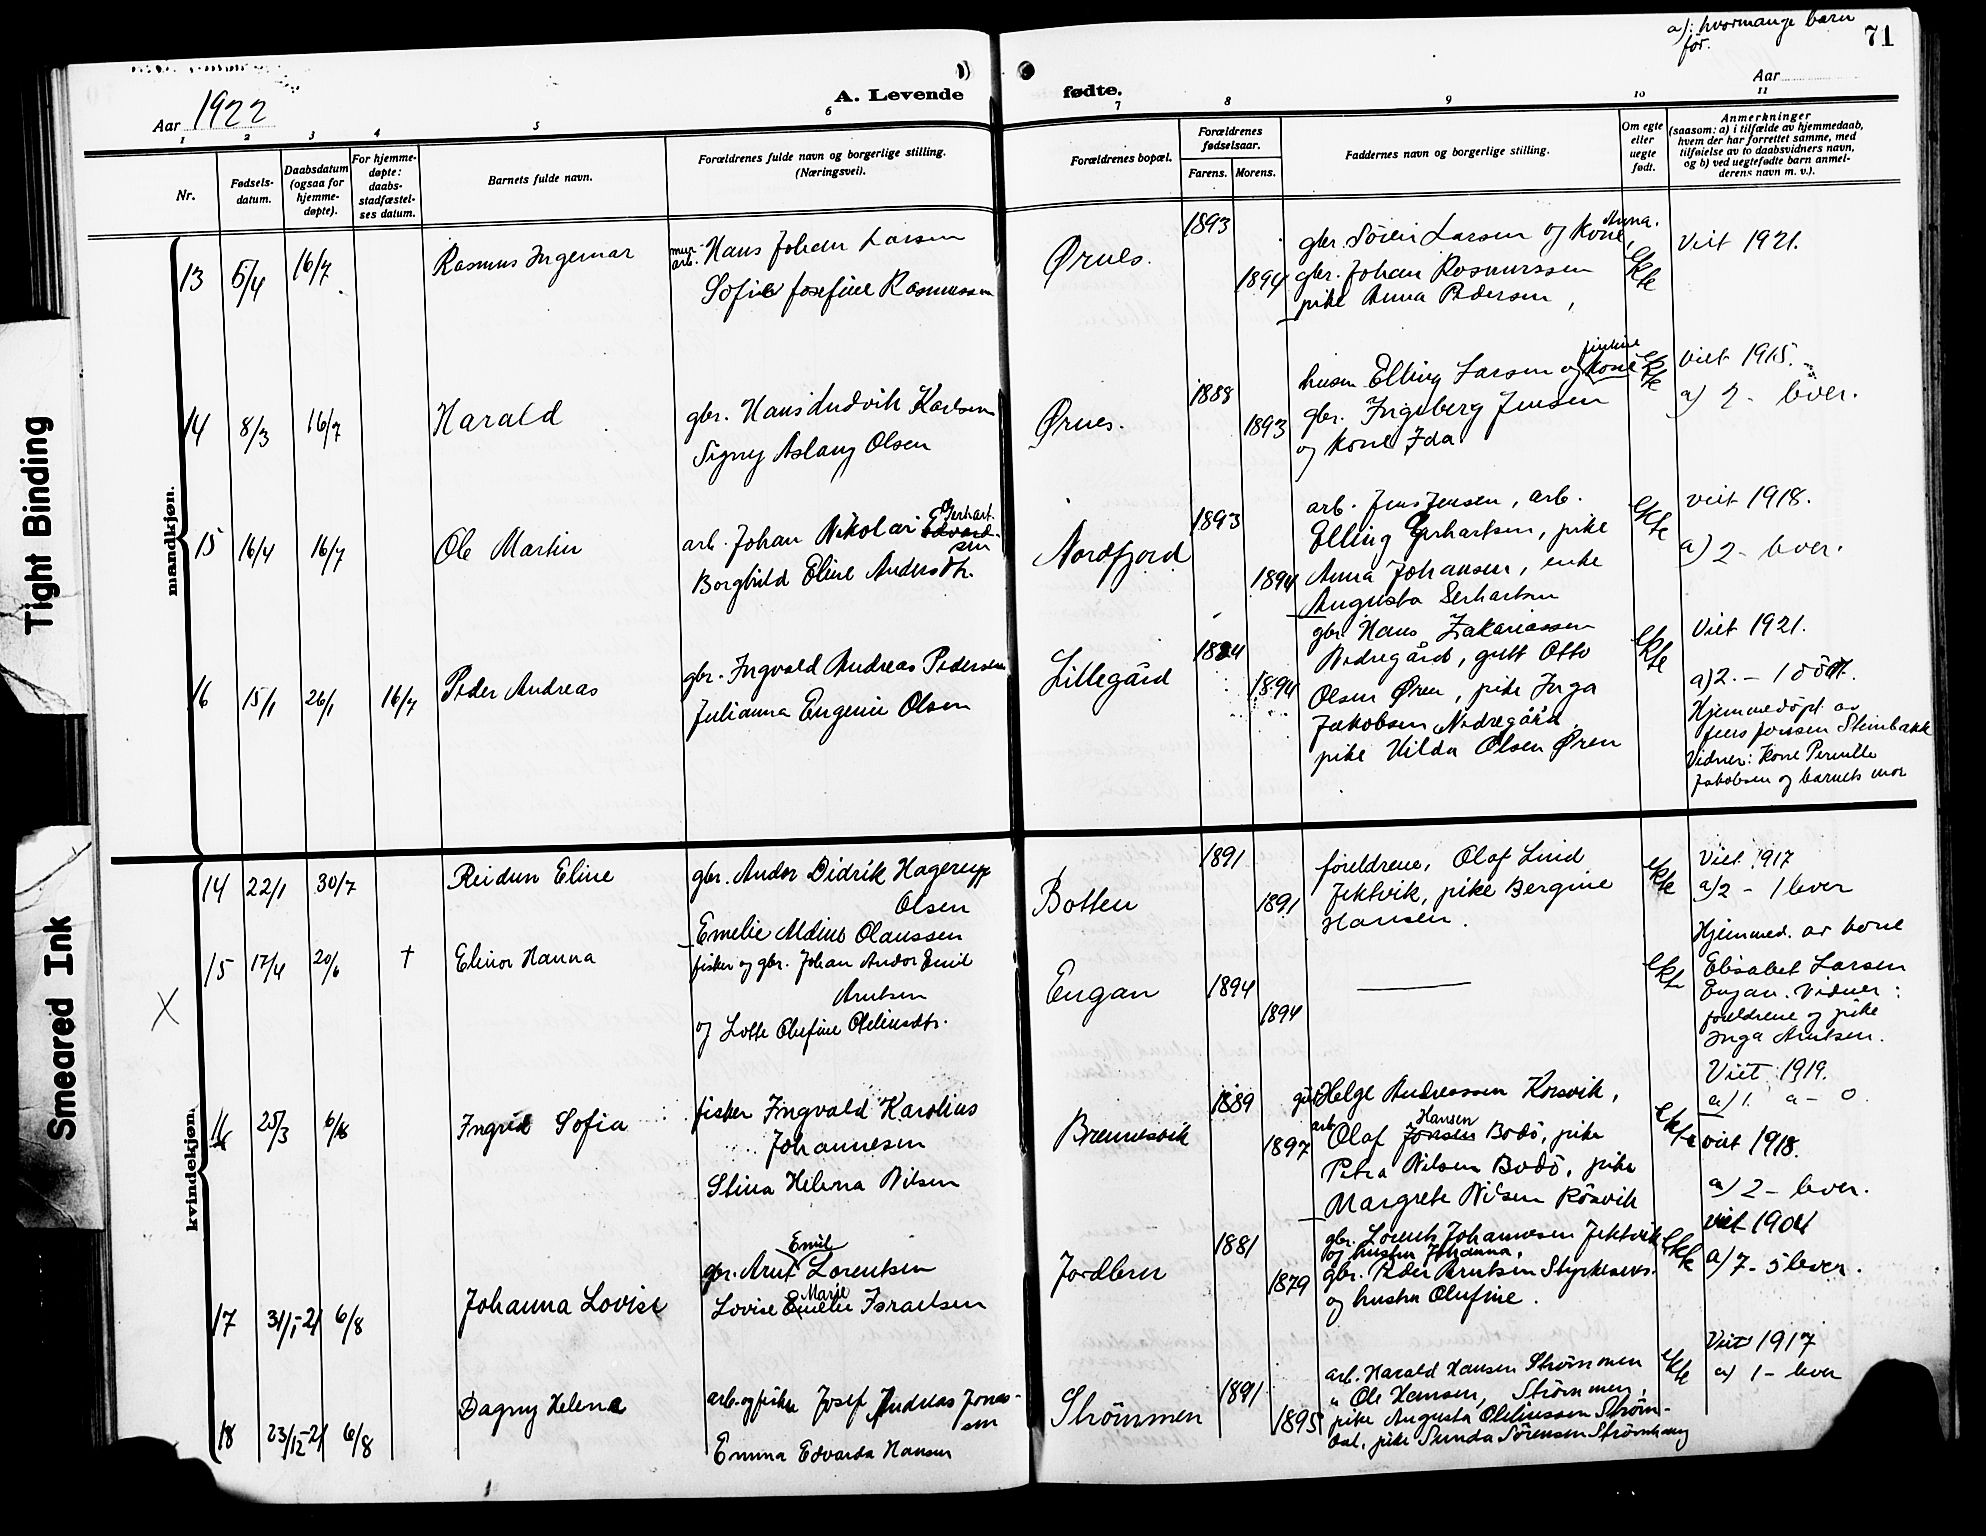 a): hvormange barn
før.
71
Aar 1922
A. Levende fødte.
Aar
1 2 3 4 5 6 7 8 9 10 11
Nr.
Fødsels-
datum.
Daabsdatum
(ogsaa for
hjemme-
døpte).
For hjemme-
døpte:
daabs-
stadfæstel-
ses datum.
Barnets fulde navn.
Forældrenes fulde navn og borgerlige stilling.
(Næringsvei).
Forældrenes bopæl.
Forældrenes
fødselsaar.
Farens. Morens.
Faddernes navn og borgerlige stilling.
Om egte
eller
uegte
født.
Anmerkninger
(saasom: a) i tilfælde av hjemmedaab,
hvem der har forrettet samme, med
tilføielse av to daabsvidners navn,
og b) ved uegtefødte barn anmel-
derens navn m. v.).
Tight Binding
Smeared Ink
mandkjøn.
13 5/4 16/7 Rasmus Ingemar
mur.
arb. Hans Johan Larsen
Sofie Josefine Rasmussen
Ørnes. 1893 1894
gbr. Søren Larsen og kone Anna.
gbr. Johan Rasmussen
pike Anna Pedersen,
ekte
Viet 1921.
14 8/3 16/7 Harald
gbr. Hans Ludvik Karlsen
Signy Aslaug Olsen
Ørnes. 1888 1893
husm Elling Larsen og kone
gbr. Ingeberg Jensen
og kone Ida
ekte
viet 1915.
a) 2 - lever.
15 16/4 16/7 Ole Martin
arb. Johan Nikolai Gerhart-
sen
Borghild Eline Andersdtr.
Nordfjord 1893 1894
arb. Jens Jensen, arb.
Elling Gerhartsen, pike
Anna Johansen, enke
Augusta Gerhartsen
ekte
viet 1918.
a) 2 - lever.
16 15/1 26/1 16/7 Peder Andreas
gbr. Ingvald Andreas Pedersen
Julianna Eugenie Olsen
Lillegård 1884 1894
gbr. Hans Zakariassen
Nedregård, gutt Otto
Olsen Øren, pike Inga
Jakobsen Nedregård,
pike Hilda Olsen Øren
ekte
Viet 1921.
a) 2. - 1 død.
Hjemmedøpt av
Jens Jenssen Steinbakk
Vidner: kone Pernille
Jakobsen og barnets mor
kvindekjøn.
14 22/1 30/7 Reidun Eline
gbr. Andor Didrik Hagerup
Olsen
Emelie Aldine Olaussen
Botten 1891 1891
foreldrene, Olaf Lind
Jektvik, pike Bergine
Hansen.
ekte
Viet 1917
a) 2 - 1 lever
X
15 17/4 20/6 † Elinor Hanna
fisker og gbr. Johan Andor Emil
Arntsen
og Lotte Olufine Oteliusdtr.
Engan 1894 1894
ekte
Hjemmed. av kone
Elisabet Larsen
Engan. Vidner:
foreldrene og pike
Inga Arntsen.
Viet 1919.
a) 1. a - 0
16 25/3 6/8 Ingrid Sofia
fisker Ingvald Karolius
Johannesen
Stina Helena Nilsen
Brennesvik 1889 1897
gbr Helge Andreassen Korsvik,
arb. Olaf Hansen Bodö, pike
Petra Nilsen Bodö, pike
Margrete Nilsen Kosvik
ekte
viet 1918.
a) 2 - lever.
17 31/1-21 6/8 Johanna Lovise
gbr. Arnt Emil Lorentsen
Lovise Marie Israelsen
Jordbru 1881 1879
gbr. Lorents Johannesen Jektvik
og hustru Johanna,
gbr. Peder Arntsen Styrkesnes.
og hustru Olufine.
ekte
viet 1904
a) 7 - 5 lever.
18 23/12-21 6/8 Dagny Helene
arb. og fisker Josef Andreas Jonas-
sen
Emma Edvarda Hansen
Strömmen 1891 1895
arb. Harald Hansen Strömmen
" Ole Hansen, Strömmen,
pike Augusta Oteliussen Ström-
dal, pike Sunda Sörensen Strömhaug
ekte
Viet 1917
a) 1 - lever